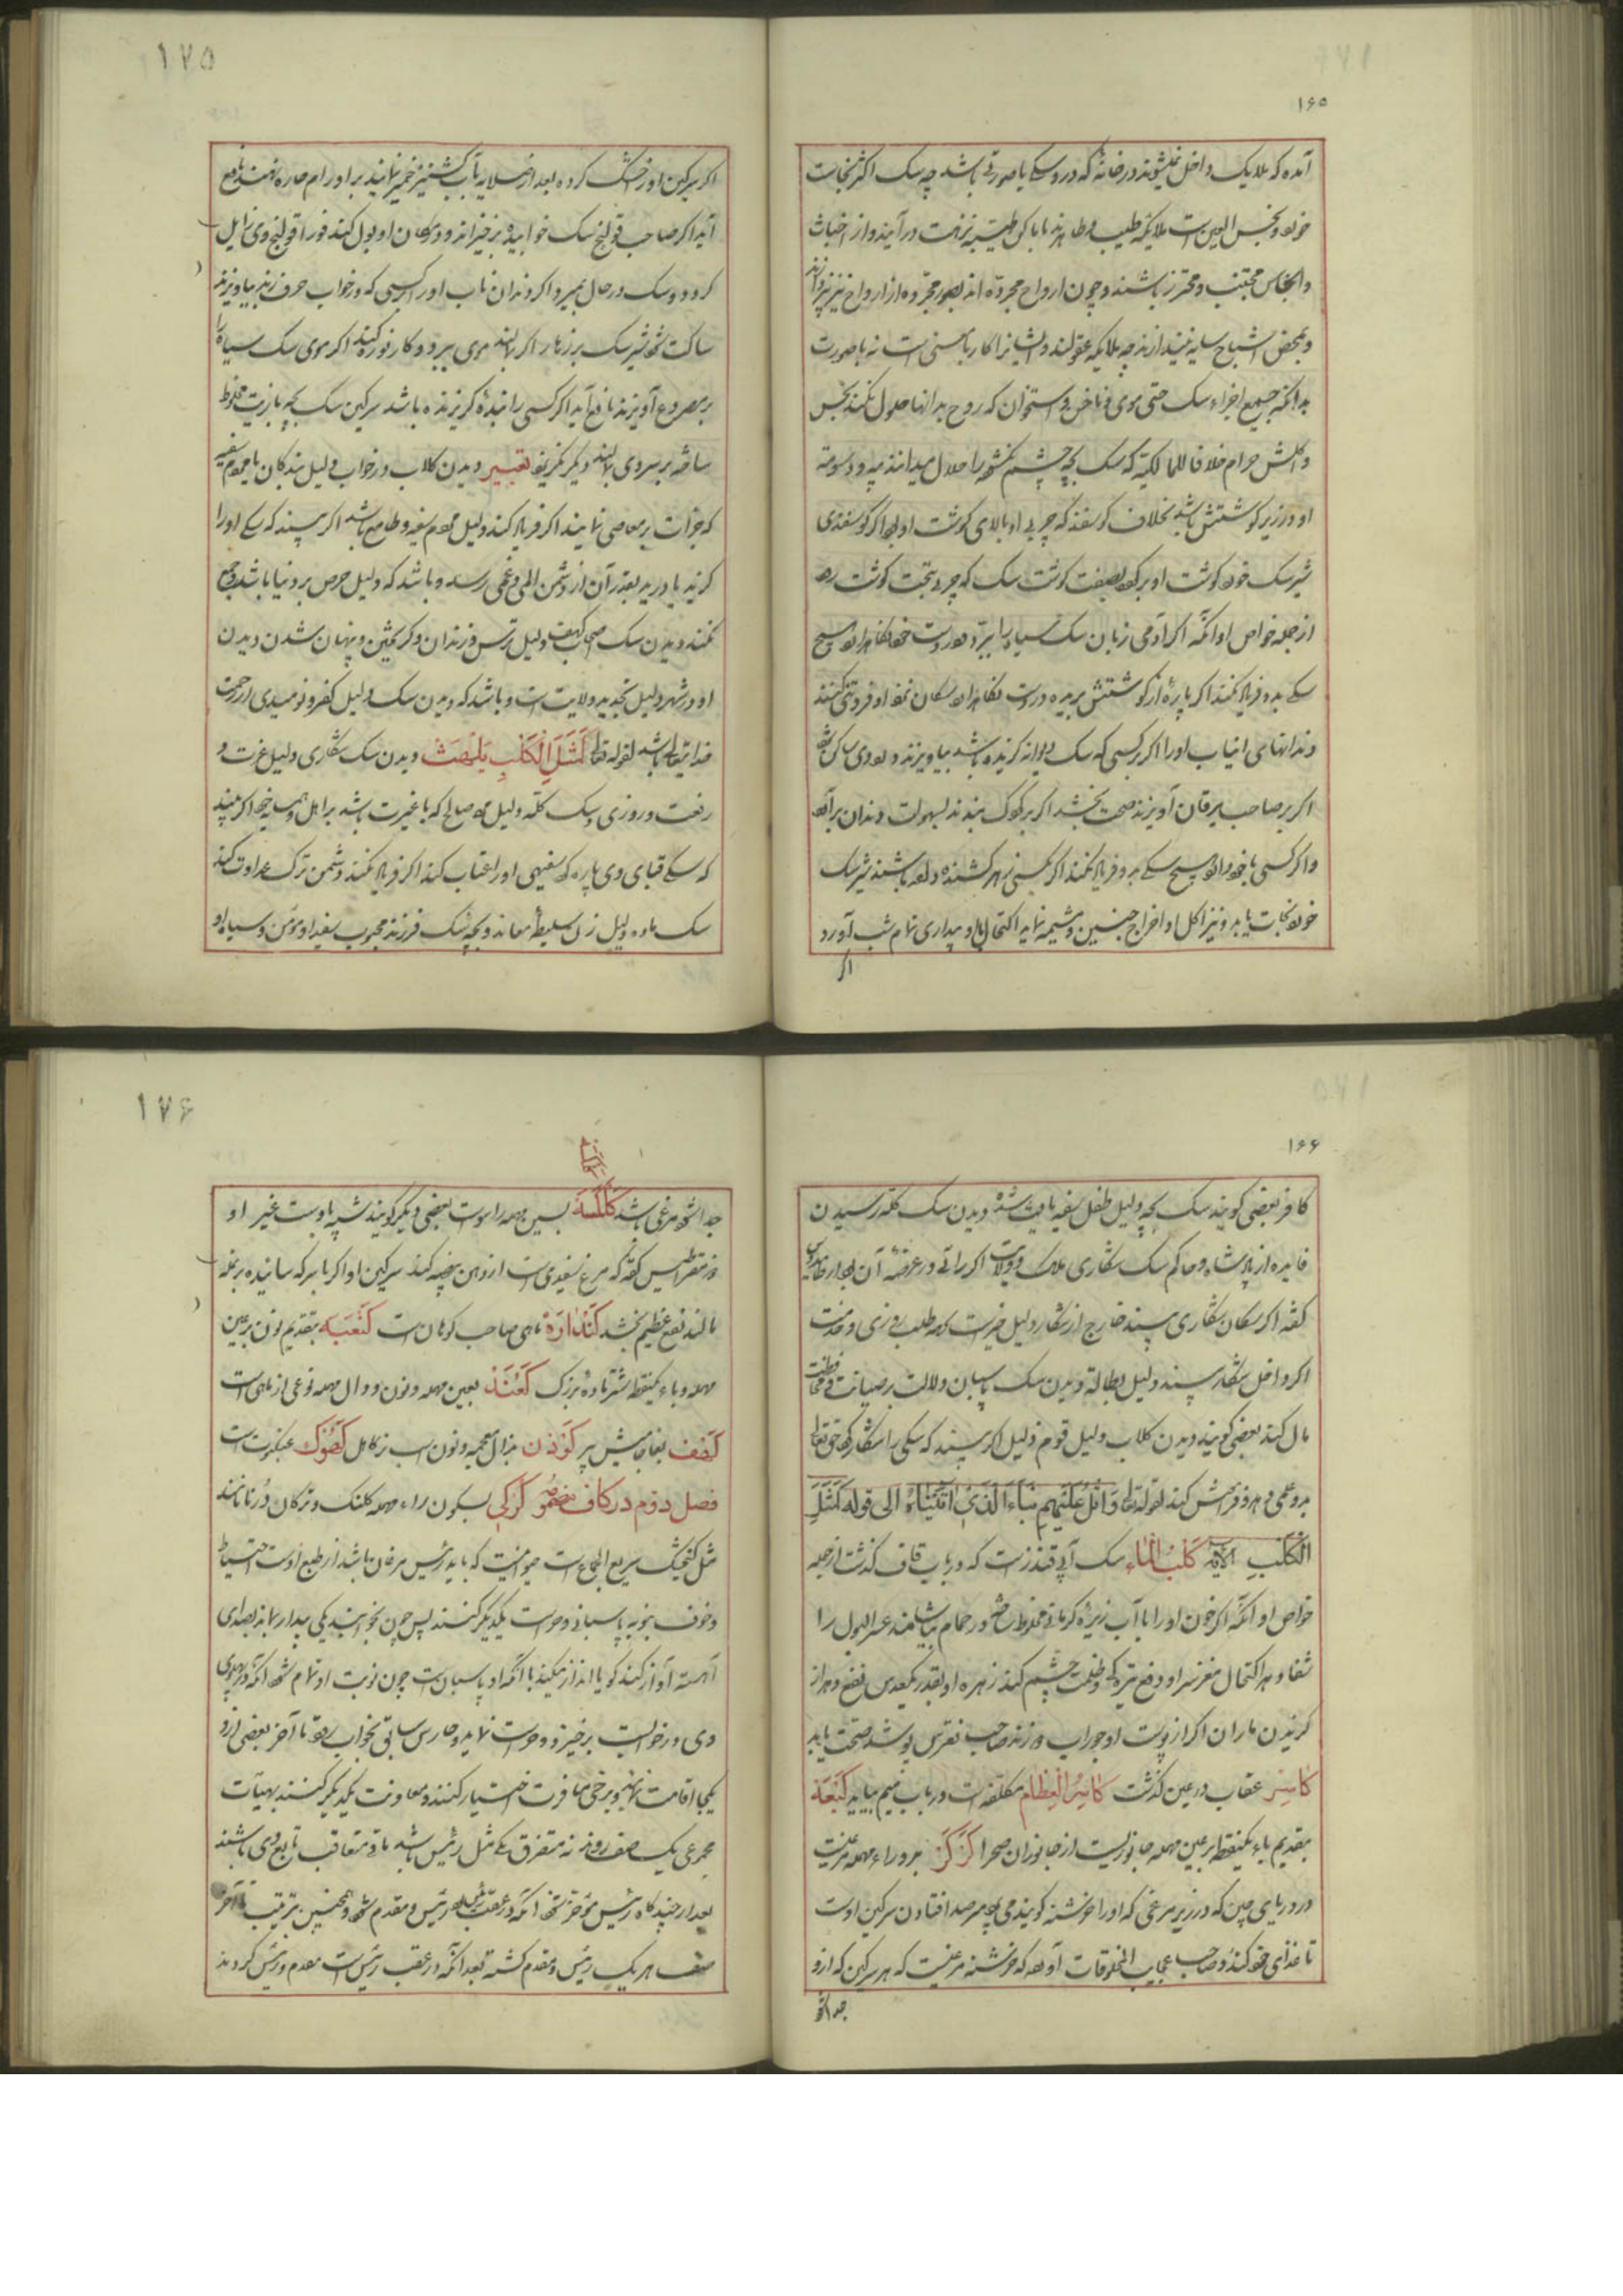 ۱۶۵
آمده که ملایک داخل نمیشوند در خانهٔ که درو سکے یا صورتی باشد چه سک اکثر نجاست
خورد و نجس العین است ملایکه طیب و طاهرند با پاکی طیبه نزهت درآیند و از اخباث
و انجاس مجتنب و محترز باشند و چون ارواح مجرده اند بصور مجرده از ارواح نیز نپردازند
و بمحض اشباح سایه نیندازند چه ملایکه عقولند و ایشانرا کار با معنی است نه با صورت
بدانکه جمیع اجزاء سک حتی موی و ناخن و استخوان که روح بدانها حلول نکند نجس
و اکلش حرام خلافا للمالکیة که سک بچه چشم نکشوده را حلال میدانند پیه و دسومه
او در زیر کوشتش باشد بخلاف کوسفند که چربی او بالای کوشت او بود اکر کوسفندی
شیر سک خورد کوشت او برکردد بصفت کوشت سک که چربی تحت کوشت رود
از جمله خواص او آنکه اکر آدمی زبان سک سیاه را ببرد و در دست خود نکاهدارد هیچ
سکے بدو فریاد نکند اکر پارهٔ از کوشتش بریده در دست نکاهدارد سکان نزد او فروتنی کنند
دندانهای انیاب او را اکر بر کسی که سک دیوانه کزیده باشد بیاویزند درد وی ساکن شود
اکر بر صاحب یرقان آویزند صحت بخشد اکر بر کودک بندند بسهولت دندان برآورد
و اکر کسی با خود دارد هیچ سکے بدو فریاد نکند اکر کسی زهر کشنده داده باشند شیر سک
خورد نجات یابد و نیز اکل او اخراج جنین و مشیمه نماید اکتحال باو بیداری تمام شب آورد
اکر
۱۷۵
اکر سرکین او خشک کرده بعد از صلایه بآب کشنیز خمیر نمایند بر اورام حاره نهند نافع
آید اکر صاحب قولنج سک خوابیده برخیزاند و در مکان او بول کند فورا قولنج وی زایل
کردد و سک در حال بمیرد اکر دندان ناب او را بر کسی که در خواب حرف زند بیاویزند
ساکت شود شیر سک بر زهار اکر بمالند موی ببرد و کار نوره کند اکر موی سک سیاه را
بر مصروع آویزند نافع آید اکر کسی را بندهٔ کریزنده باشد سرکین سک بچه با زیت مخلوط
ساخته بر سر وی بمالند دیکر نکریزد تعبیر دیدن کلاب در خواب دلیل بندکان یا مردم سفیه
که جرأت بر معاصی نمایند اکر فریاد کند دلیل مردم سفیه و طامع باشد اکر بیند که سکے او را
کزید یا درید بقدر آن از دشمن المی و غمی رسد و باشد که دلیل حرص بر دنیا باشد و جمع
نکند دیدن سک اصحاب کهف دلیل ترس و زندان و کریختن و پنهان شدن دیدن
او در شهر دلیل تجدید ولایت است و باشد که دیدن سک دلیل کفر و نومیدی از رحمت
خدایتعالی باشد لقوله تعالی کَمَثَلِ الْکَلْبِ یَلْهَثْ دیدن سک شکاری دلیل عزت و
رفعت و روزی و سک کله دلیل مرد صالح که با غیرت باشد بر اهل و همسایهٔ خود اکر بیند
که سکے قبای وی پاره کرد سفیهی او را اغتیاب کند اکر فریاد نکند دشمن ترک عداوت کند
سک ماده دلیل زن سلیطهٔ معاند و بچه سک فرزند محبوب سفید او مؤمن و سیاه او
۱۶۶
کافر بعضی کویند سک بچه دلیل طفل سفیه یافت شده دیدن سک کله رسیدن
فایده از پادشاه و حاکم سک شکاری ملک و ولایت
کفته اکر سکان شکاری بیند خارج از شکار دلیل خیرست که طلب روزی و خدمت
اکر داخل شکار بیند دلیل بطالة دیدن سک پاسبان دلالت بر صیانت و محافظت
مال کند بعضی کویند دیدن کلاب دلیل قوم ذلیل اکر بیند که سکی را شکار کرد حق تعالی
بدو علمی دهد و فراموش کند لقوله تعالی وَاتْلُ عَلَیْهِمْ نَبَأَ الَّذِی آتَیْنَاهُ الی قوله کَمَثَلِ
الْکَلْبِ الآیه کَلْبُ الْمَاء سک آبی قندزست که در باب قاف کذشت از جمله
خواص او آنکه اکر خون او را با آب زیرهٔ کرمانی مخلوط ساخته در حمام بیاشامند عسر البول را
شفا دهد اکتحال مغز سر او دفع تیرکی و ظلمت چشم کند زهرهٔ او بقدر یکعدس نفع دهد از
کزیدن ماران اکر از پوست او جوراب دوزند صاحب نقرس پوشد صحت یابد
کاسِر عقاب در عین کذشت کاسِرُ الْعِظَام مکلفه است در باب میم بیاید کَبْعَة
بتقدیم باء یکنقطه بر عین مهمله جانوریست از جانوران صحرا کَرْکَر بدو راء مهمله مرغیست
در دریای چین که در زیر مرغی که او را خرشنه کویند می پرد مترصد افتادن سرکین اوست
تا غذای خود کند و صاحب عجایب المخلوقات آورده که خرشنه مرغیست که هر سرکین که ازو
جدا شود
۱۷۶
جدا شود مرغی باشد کَلْکَسَة بسین مهمله راسوست بعضی دیکر کویند شبیه باوست غیر او
دیمقراطیس کفته که مرغ سفیدی است از دهن بیضه کند سرکین او اکر با سرکه سائیده بر بغله
مالند نفع عظیم بخشد کَنْدَارَة ماهی صاحب کوهان است کَنْعَبَه بتقدیم نون بر عین
مهمله و باء یکنقطه شتر مادهٔ بزرک کَعْنَد بعین مهمله و نون و دال مهمله نوعی از ماهی است
کَوْدَن بذال معجمه و نون اسب نر کامل کَهُوک عنکبوت است
فصل دوم در کاف مضموم کُرْکی بسکون راء مهمله کلنک و ترکان دُرنا نامند
مثل کنجشک سریع الجماع است حیوانیست که باید رئیس مرغان باشد از طبع اوست احتیاط
و خوف بنوبه پاسبانی و حراست یکدیکر کنند پس چون بخوابند یکی بیدار ماند بصدای
آهسته آواز کند کویا انذار میکند با آنکه او پاسبان است چون نوبت او تمام شود آنکه در پهلوی
وی در خوابست برخیزد و حراست نماید و حارس سابق بخواب رود تا آخر بعضی ازو
یکجا اقامت نمایند و برخی مسافرت اختیار کنند و معاونت یکدیکر کنند بهیآت
مجموعی یک صف روند نه متفرق یکے مثل رئیس باشد باقی متعاقب تابع وی باشند
بعد از چندکاه رئیس مؤخر شود آنکه در عقب رئیس بود رئیس و مقدم شود و همچنین بترتیب تا آخر
صف هر یک رئیس و مقدم کشته بعد آنکه در عقب رئیس است مقدم و رئیس کردند